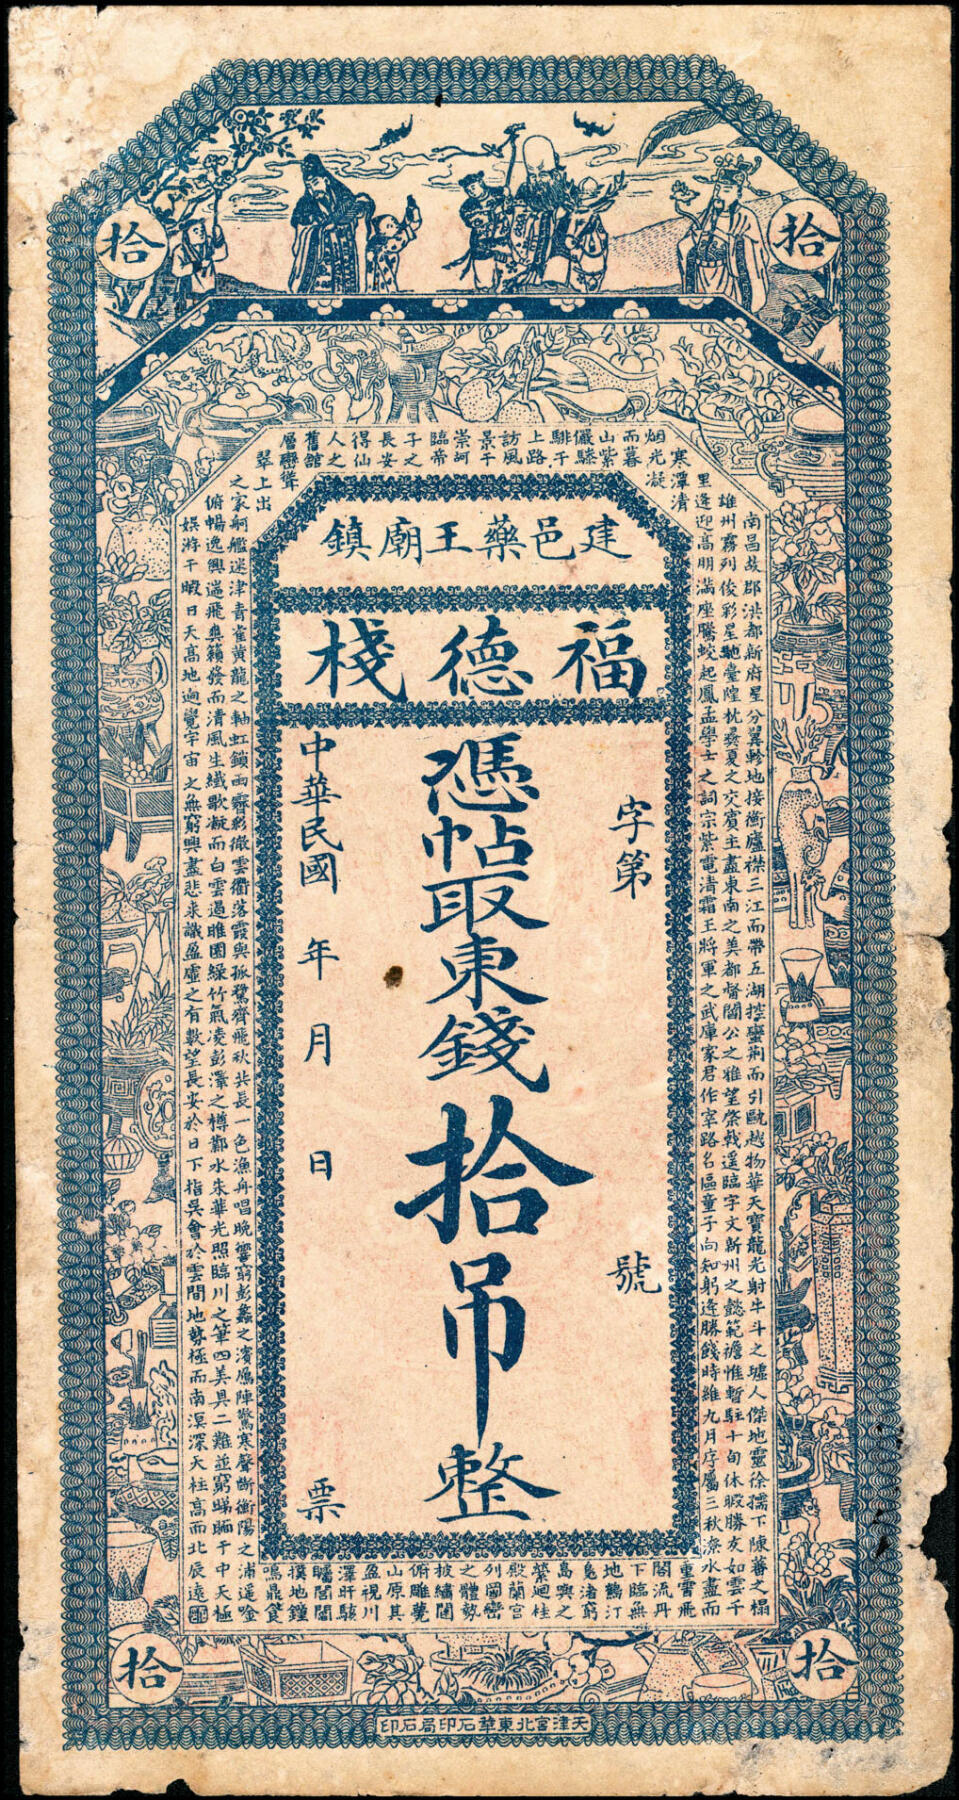 拾
拾
建邑藥王廟鎮
福德棧
字第 號
憑帖取東錢拾吊整
中華民國 年 月 日 票
南昌故郡洪都新府星分翼軫地接衡廬襟三江而帶五湖控蠻荊而引甌越物華天寶龍光射牛斗之墟人傑地靈徐孺下陳蕃之榻
雄州霧列俊彩星馳臺隍枕夷夏之交賓主盡東南之美都督閻公之雅望棨戟遥臨宇文新州之懿範襜惟暫駐十旬休暇勝友如雲千
里逢迎高朋滿座騰蛟起鳳孟學士之詞宗紫電清霜王將軍之武庫家君作宰路名區童子何知躬逢勝餞時維九月序屬三秋潦水盡而
寒潭清
烟光凝
而暮
山紫
儼驂
騑于
上路
訪風
景于
崇阿
臨帝
子之
長安
得仙
人之
舊館
層巒聳
翠上出
重霄飛
閣流丹
下臨無
地鶴汀
鳧渚窮
島嶼之
縈迴桂
殿蘭宮
列岡巒
之體勢
披繡闥
俯雕甍
山原其
盈視川
澤盱駭
矚閭閻
撲地鐘
鳴鼎食
之家舸艦迷津青雀黃龍之軸虹銷雨霽彩徹雲衢落霞與孤鶩齊飛秋共長一色漁舟唱晚響窮彭蠡之濱鴈陣驚寒聲斷衡陽之浦遥唫
俯暢逸興遄飛爽籟發而清風生纖歌凝而白雲遏睢園綠竹氣凌彭澤之樽鄴水朱華光照臨川之筆四美具二難並窮睇眄于中天極
娛游于暇日天高地迥覺宇宙之無窮興盡悲來識盈虛之有數望長安於日下指吳會於雲間地勢極而南溟深天柱高而北辰遠
拾
拾
天津宮北東華石印局石印